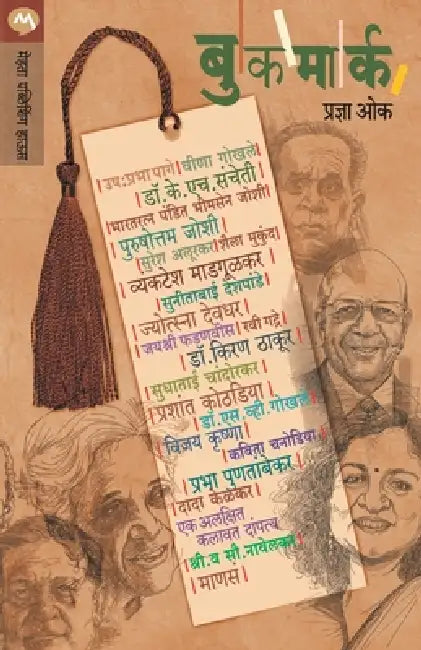 मेहता पब्लिशिंग हाऊस
बुकमार्क
प्रज्ञा ओक
उषःप्रभा पागे | वीणा गोखले
डॉ.के.एच.संचेती
भारतरत्न पंडित भीमसेन जोशी
पुरुषोत्तम जोशी
सुरेश अलूरकर | शैला मुकुंद
व्यंकटेश माडगूळकर
सुनीताबाई देशपांडे
ज्योत्स्ना देवधर
जयश्री फडणवीस | रवी गद्रे
डॉ.किरण ठाकूर
सुधाताई चांदोरकर
प्रशांत कोठडिया
डॉ.एस.व्ही.गोखले
विजय कृष्णा
कविता चनोडिया
प्रभा पुणतांबेकर
दादा केळकर
एक अलक्षित
कलावंत दांपत्य
श्री.व सौ.
माणसं